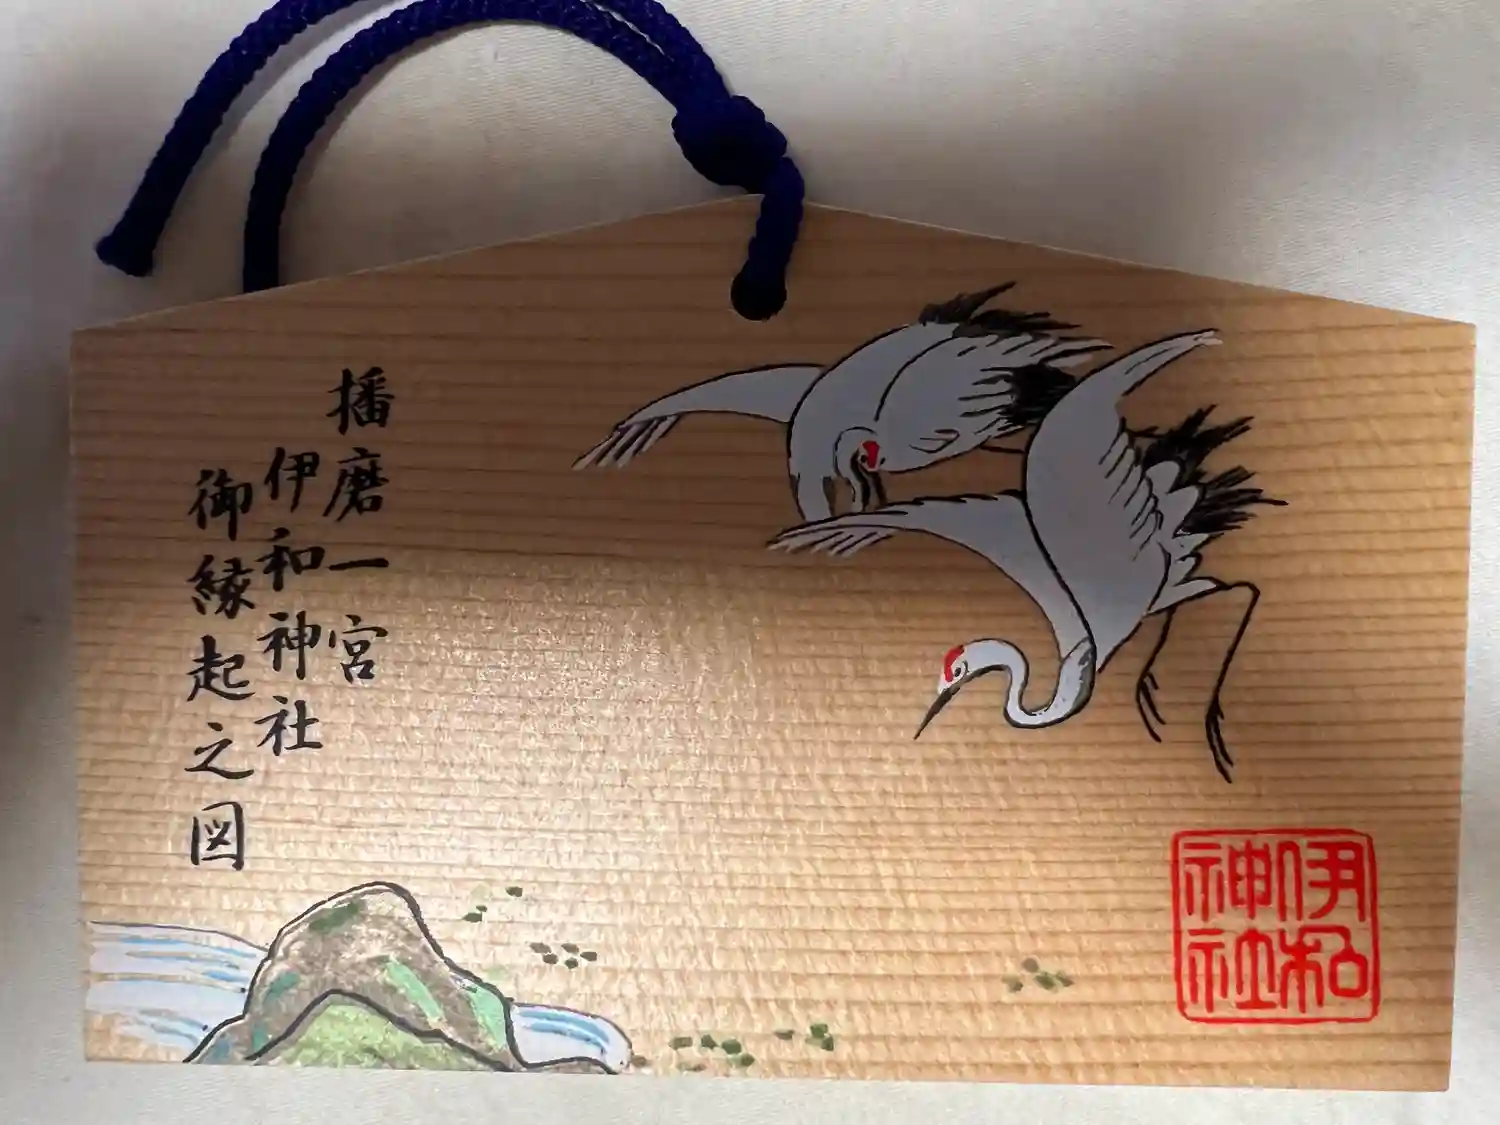 播磨一宮
伊和神社
御縁起之図
伊和
神社